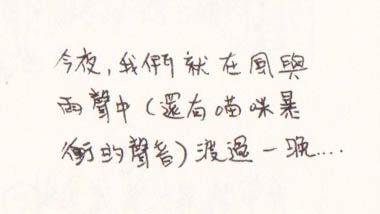 今夜,我們就在風與
雨聲中(還有喵咪暴
衝的聲音)渡過一晚....